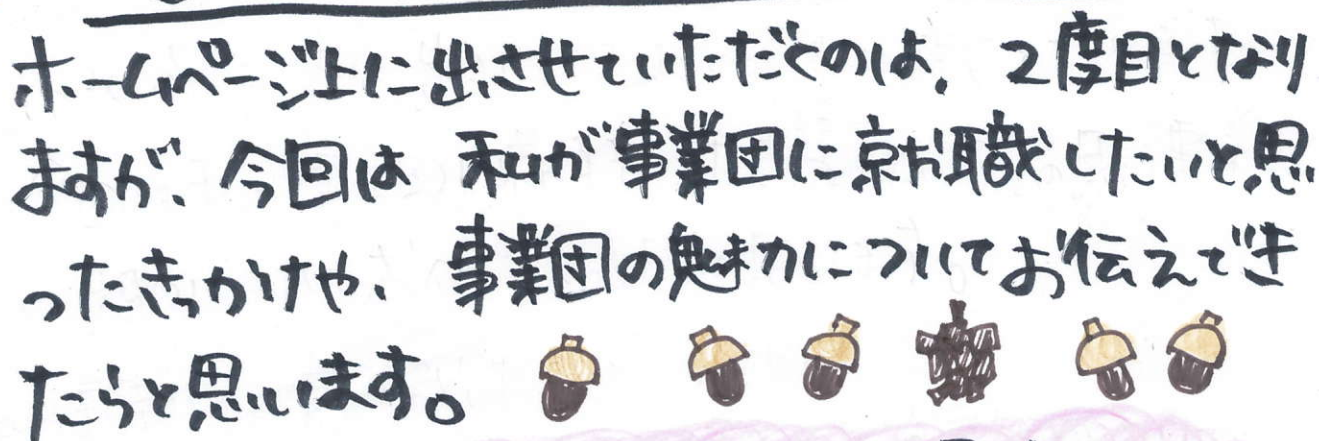 ホームページ上に出させていただくのは、2度目となり
ますが、今回は 私が事業団に就職したいと思
ったきっかけや、事業団の魅力についてお伝えでき
たらと思います。